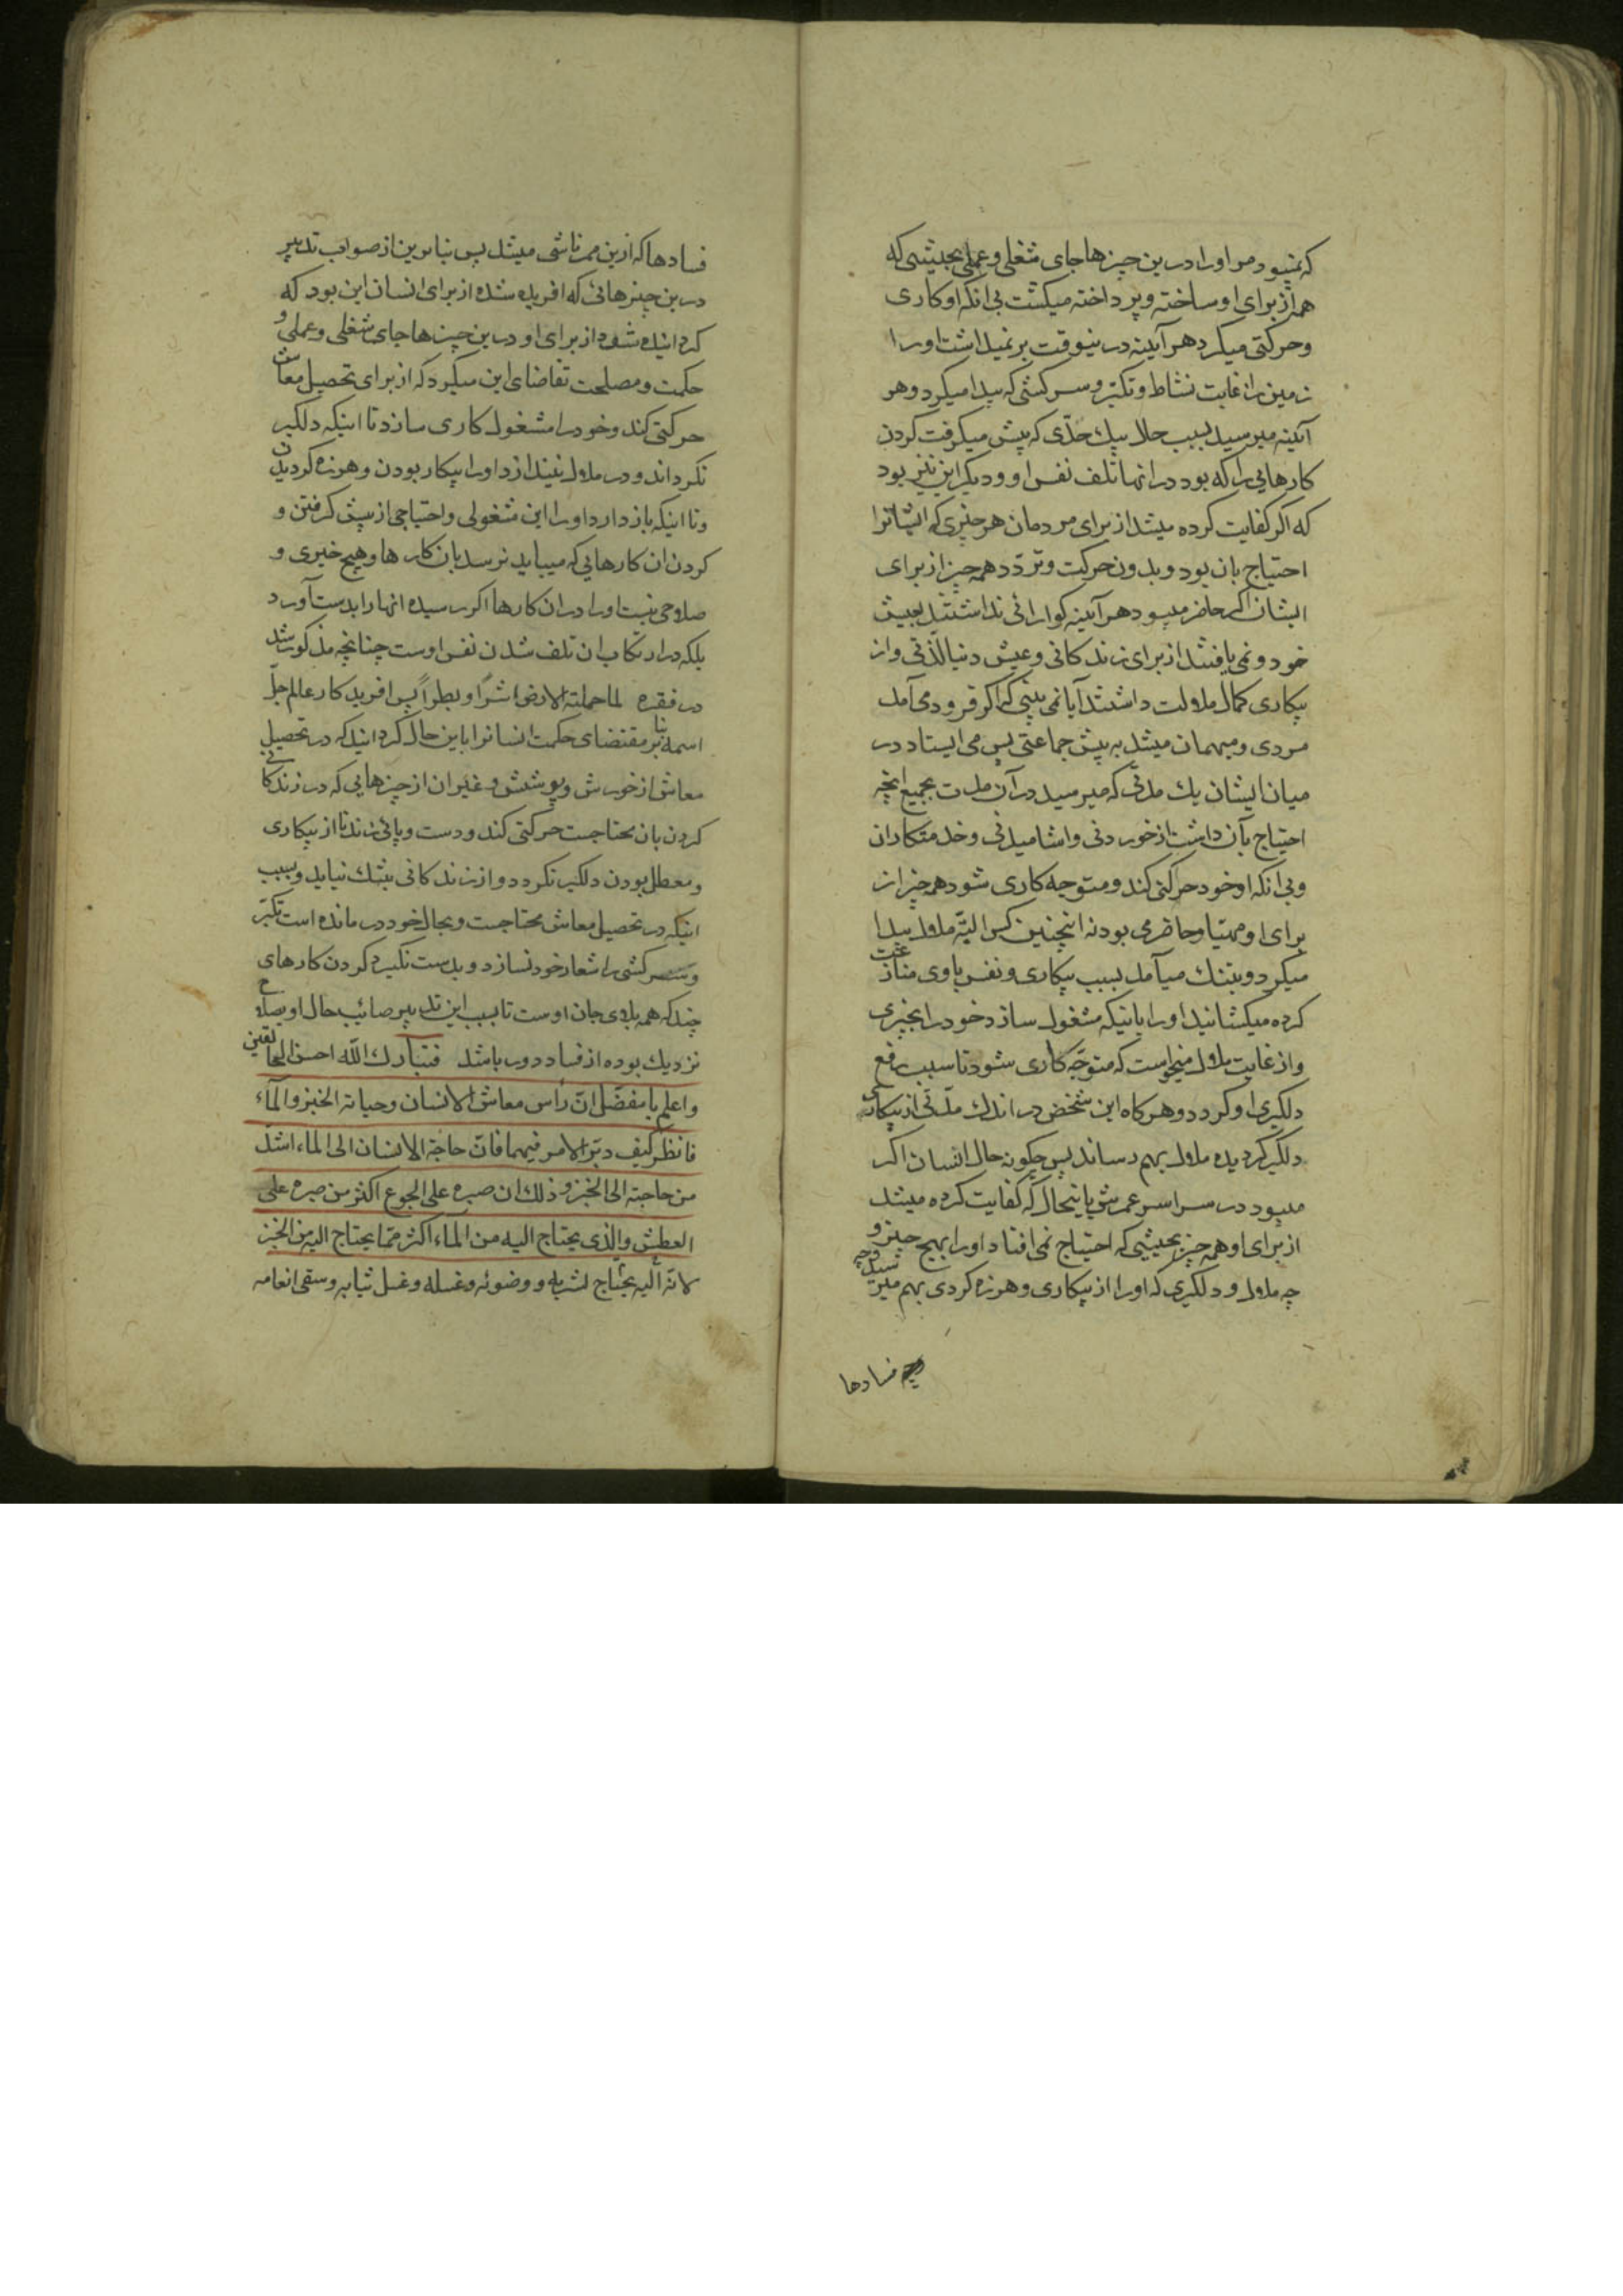 که نمیبود مر او را درین چیزها جای شغلی و عملی بحیثیتی که
همه از برای او ساخته و پرداخته میکشت بی انکه او کاری
و حرکتی میکرد هر آینه درینوقت بر نمیداشت او را
زمین از غایت نشاط و تکبّر و سرکشی که پیدا میکرد و هر
آینه میرسید بسبب حالا بیک حدّی که پیش میکرفت کردن
کارهایی را که بود در انها تلف نفس او و دیکر این نیز بود
که اکر کفایت کرده میشد از برای مردمان هر چیزی که ایشانرا
احتیاج بان بود و بدون حرکت و تردّد همه چیز از برای
ایشان اکر حاضر میبود هر آینه کوارائی نداشتند بعیش
خود و نمی یافتند از برای زندکانی و عیش دنیا لذّتی و از
بیکاری کمال ملالت داشتند آیا نمی بینی که اکر فرود می آمد
مردی و میهمان میشد به پیش جماعتی پس می ایستاد در
میان ایشان یک مدّتی که میرسید در آن مدت بجمیع انچه
احتیاج بآن داشت از خوردنی و اشامیدنی و خدمتکاران
و بی انکه او خود حرکتی کند و متوجه کاری شود همه چیز از
برای او مهیّا و حاضر می بود نه اینچنین کس البتّه ملال پیدا
میکرد و بتنک میآمد بسبب بیکاری و نفس با وی منازعت
کرده میکشانید او را باینکه مشغول سازد خود را بچیزی
و از غایت ملال میخواست که متوجّه کاری شود تا سبب رفع
دلکیری او کردد و هرکاه این شخص در اندک مدّتی از بیکاری
دلکیر کردیده ملال بهم رساند پس چکونه حال انسان اکر
میبود در سراسر عمرش باینحال که کفایت کرده میشد
از برای او همه چیز بحیثیتی که احتیاج نمی افتاد او را بهیچ چیز و
چه ملال و دلکیری که او را از بیکاری و هرزه کردی بهم میرسید و چه
فسادها
فسادها که ازین ممر ناشی میشد پس بنابرین از صواب تدبیر
درین چیزهائی که افریده شده از برای انسان این بود که
کردانیده شود از برای او درین چیزها جای شغلی و عملی و
حکمت و مصلحت تقاضای این میکرد که از برای تحصیل معاش
حرکتی کند و خود را مشغول کاری سازد تا اینکه دلکیر
نکرداند و در ملال نیندازد او را بیکار بودن و هرزه کردیدن
و تا اینکه باز دارد او را این مشغولی و احتیاجی از پیش کرفتن و
کردن ان کارهایی که میباید نرسد بان کارها و هیچ خیری و
صلاحی نیست او را در ان کارها اکر رسیده انها را بدست آورد
بلکه در ارتکاب ان تلف شدن نفس اوست چنانچه مذکور شد
در فقره لما حملته الارض اشراً و بطراً پس افریدکار عالم جلّ
اسمه بنا بر مقتضای حکمت انسانرا باین حال کردانید که در تحصیل
معاش از خورش و پوشش و غیر ان از چیزهایی که در زندکانی
کردن بان محتاجست حرکتی کند و دست و پائی زند تا از بیکاری
و معطل بودن دلکیر نکردد و از زندکانی بتنک نیاید و بسبب
اینکه در تحصیل معاش محتاجست و بحال خود در مانده است تکبّر
و سرکشی را شعار خود نسازد و بدست نکیرد کردن کارهای
چند که همه بلای جان اوست تا بسبب این تدبیر صائب حال او بصلاح
نزدیک بوده از فساد دور باشد فتبارک الله احسن الخالقین
و اعلم یا مفضّل انّ رأس معاش الانسان و حیاته الخبز و المآء
فانظر کیف دبّر الامر فیهما فانّ حاجة الانسان الی الماء اشدّ
من حاجته الی الخبز و ذلک ان صبره علی الجوع اکثر من صبره علی
العطش و الذی یحتاج الیه من الماء اکثر ممّا یحتاج الیه من الخبز
لانّه الیه یحتاج لشربه و وضوئه و غسله و غسل ثیابه و سقی انعامه